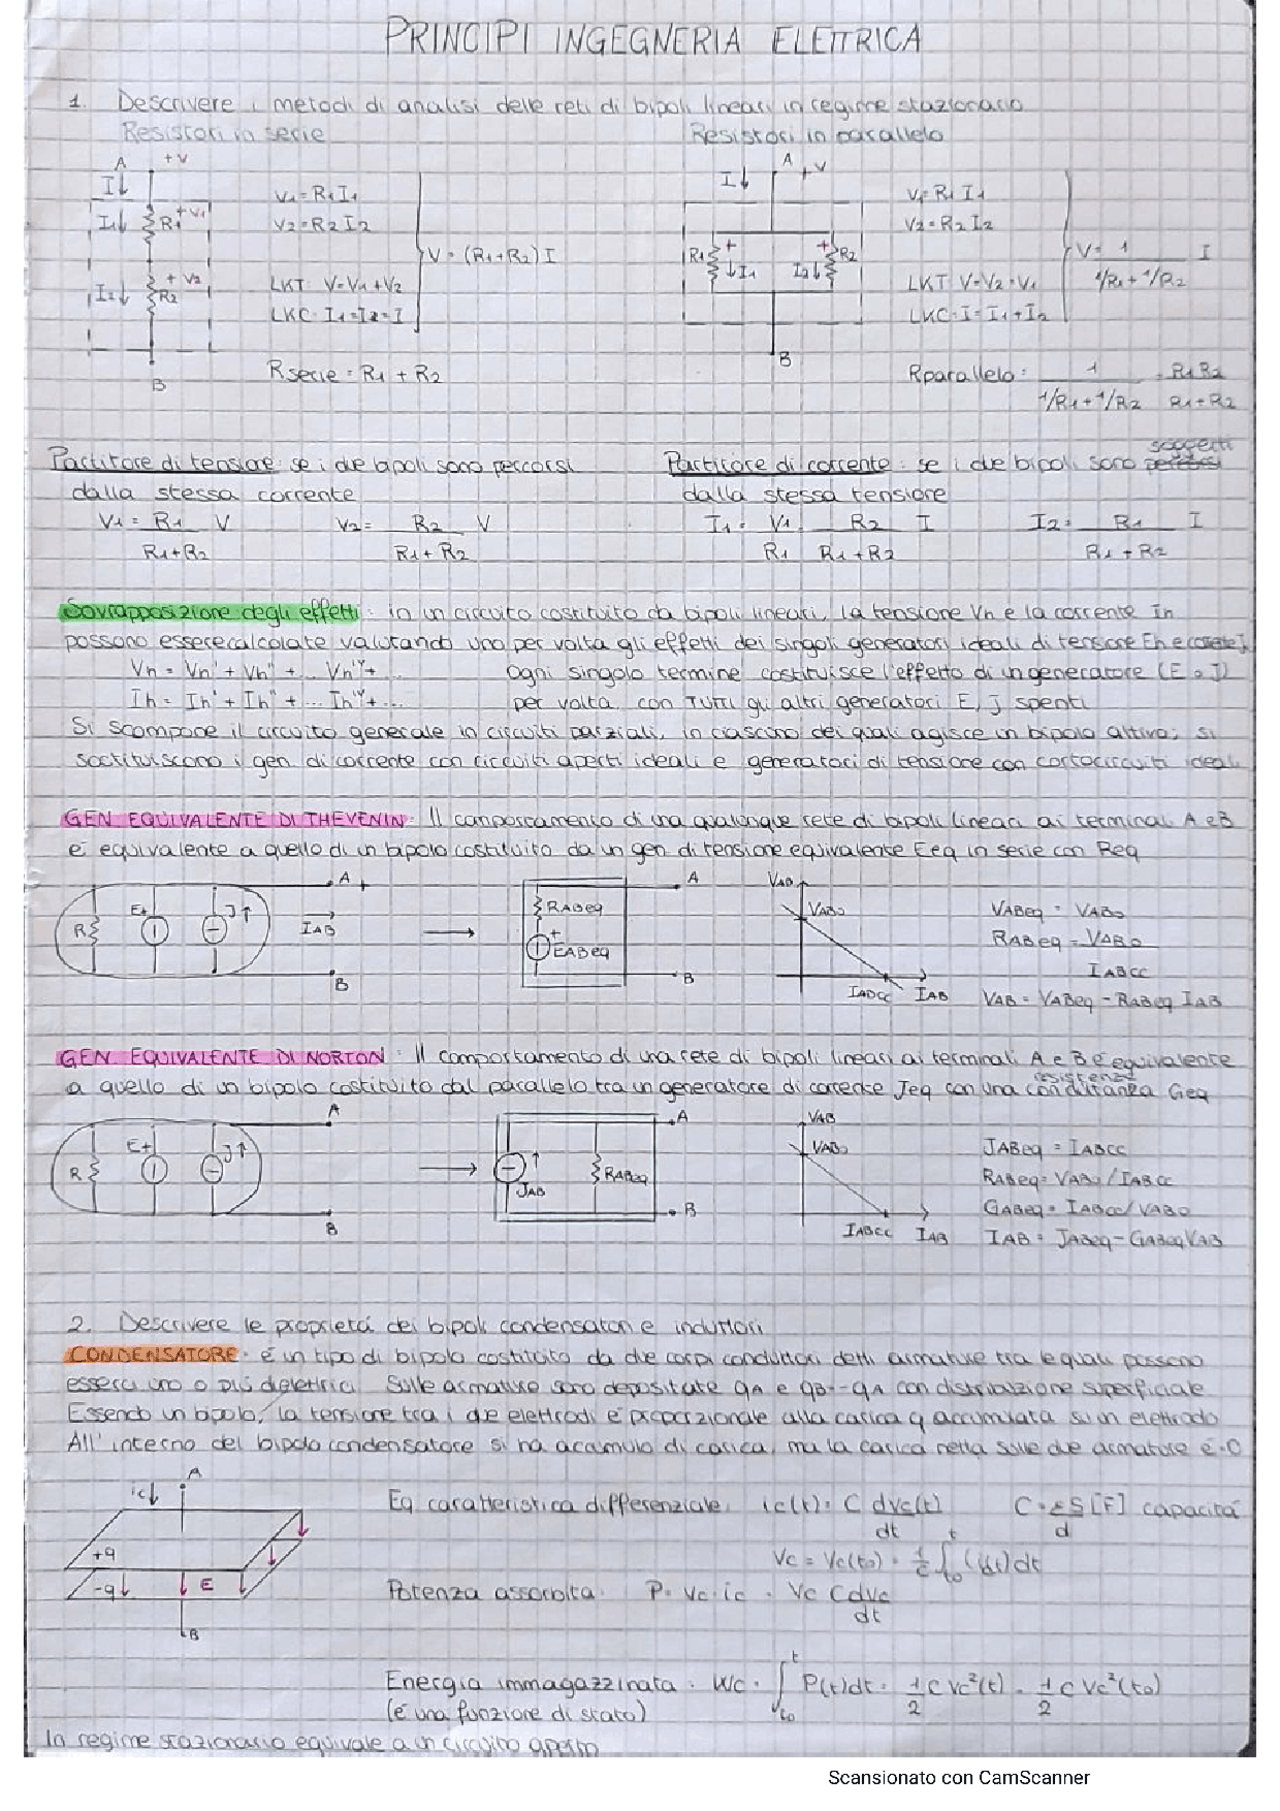 PRINCIPI INGEGNERIA ELETTRICA
1. Descrivere i metodi di analisi delle reti di bipoli lineari in regime stazionario
Resistori in serie
A +V
I↓
I1↓ R1 +V1
I2↓ +V2 R2
B
V1 = R1 I1
V2 = R2 I2
LKT: V = V1 + V2
LKC: I1 = I2 = I
V = (R1+R2) I
R serie = R1 + R2
Resistori in parallelo
A +V
I↓
R1 + ↓I1 I2↓ + R2
B
V1 = R1 I1
V2 = R2 I2
LKT V = V2 = V1
LKC: I = I1 + I2
V = 1 / (1/R1 + 1/R2) I
Rparallelo = 1 / (1/R1 + 1/R2) = R1 R2 / (R1 + R2)
Partitore di tensione: se i due bipoli sono percorsi
dalla stessa corrente
V1 = R1 / (R1+R2) V V2 = R2 / (R1+R2) V
Partitore di corrente: se i due bipoli sono soggetti
dalla stessa tensione
I1 = V1 / R1 = R2 / (R1+R2) I I2 = R1 / (R1+R2) I
Sovrapposizione degli effetti: in un circuito costituito da bipoli lineari, la tensione Vn e la corrente In
possono essere calcolate valutando uno per volta gli effetti dei singoli generatori ideali di tensione Eh e corrente J
Vn = Vn' + Vn'' + ... Vn'ᵛ + ... Ogni singolo termine costituisce l'effetto di un generatore (E o J)
Ih = Ih' + Ih'' + ... Ih'ᵛ + ... per volta, con TUTTI gli altri generatori E, J spenti
Si scompone il circuito generale in circuiti parziali, in ciascuno dei quali agisce un bipolo attivo; si
sostituiscono i gen di corrente con circuiti aperti ideali e generatori di tensione con cortocircuiti ideali
GEN EQUIVALENTE DI THEVENIN: Il comportamento di una qualunque rete di bipoli lineari ai terminali A e B
è equivalente a quello di un bipolo costituito da un gen di tensione equivalente Eeq in serie con Req
R E+ J↑ A + IAB B
RABeq + EABeq A B
VAB VAB0 IABCC IAB
VABeq = VAB0
RABeq = VAB0 / IABCC
VAB = VABeq - RABeq IAB
GEN EQUIVALENTE DI NORTON: Il comportamento di una rete di bipoli lineari ai terminali A e B è equivalente
a quello di un bipolo costituito dal parallelo tra un generatore di corrente Jeq con una conduttanza Geq
resistenza
R E+ J↑ A B
JAB RABeq A B
VAB VAB0 IABCC IAB
JABeq = IABCC
RABeq = VAB0 / IABCC
GABeq = IABCC / VAB0
IAB = JABeq - GABeq VAB
2. Descrivere le proprietà dei bipoli condensatori e induttori
CONDENSATORE: è un tipo di bipolo costituito da due corpi conduttori detti armature tra le quali possono
esserci uno o più dielettrici. Sulle armature sono depositate qA e qB=-qA con distribuzione superficiale
Essendo un bipolo, la tensione tra i due elettrodi è proporzionale alla carica q accumulata su un elettrodo
All'interno del bipolo condensatore si ha accumulo di carica, ma la carica netta sulle due armature è =0
A ic↓
+q
-q E
B
Eq. caratteristica differenziale: ic(t) = C dvc(t) / dt C = εS / d [F] capacità
Potenza assorbita: P = Vc · ic = Vc C dvc / dt
Energia immagazzinata: Wc = ∫ t0 t P(t)dt = 1/2 C Vc²(t) - 1/2 C Vc²(t0)
(è una funzione di stato)
In regime stazionario equivale a un circuito aperto
Scansionato con CamScanner